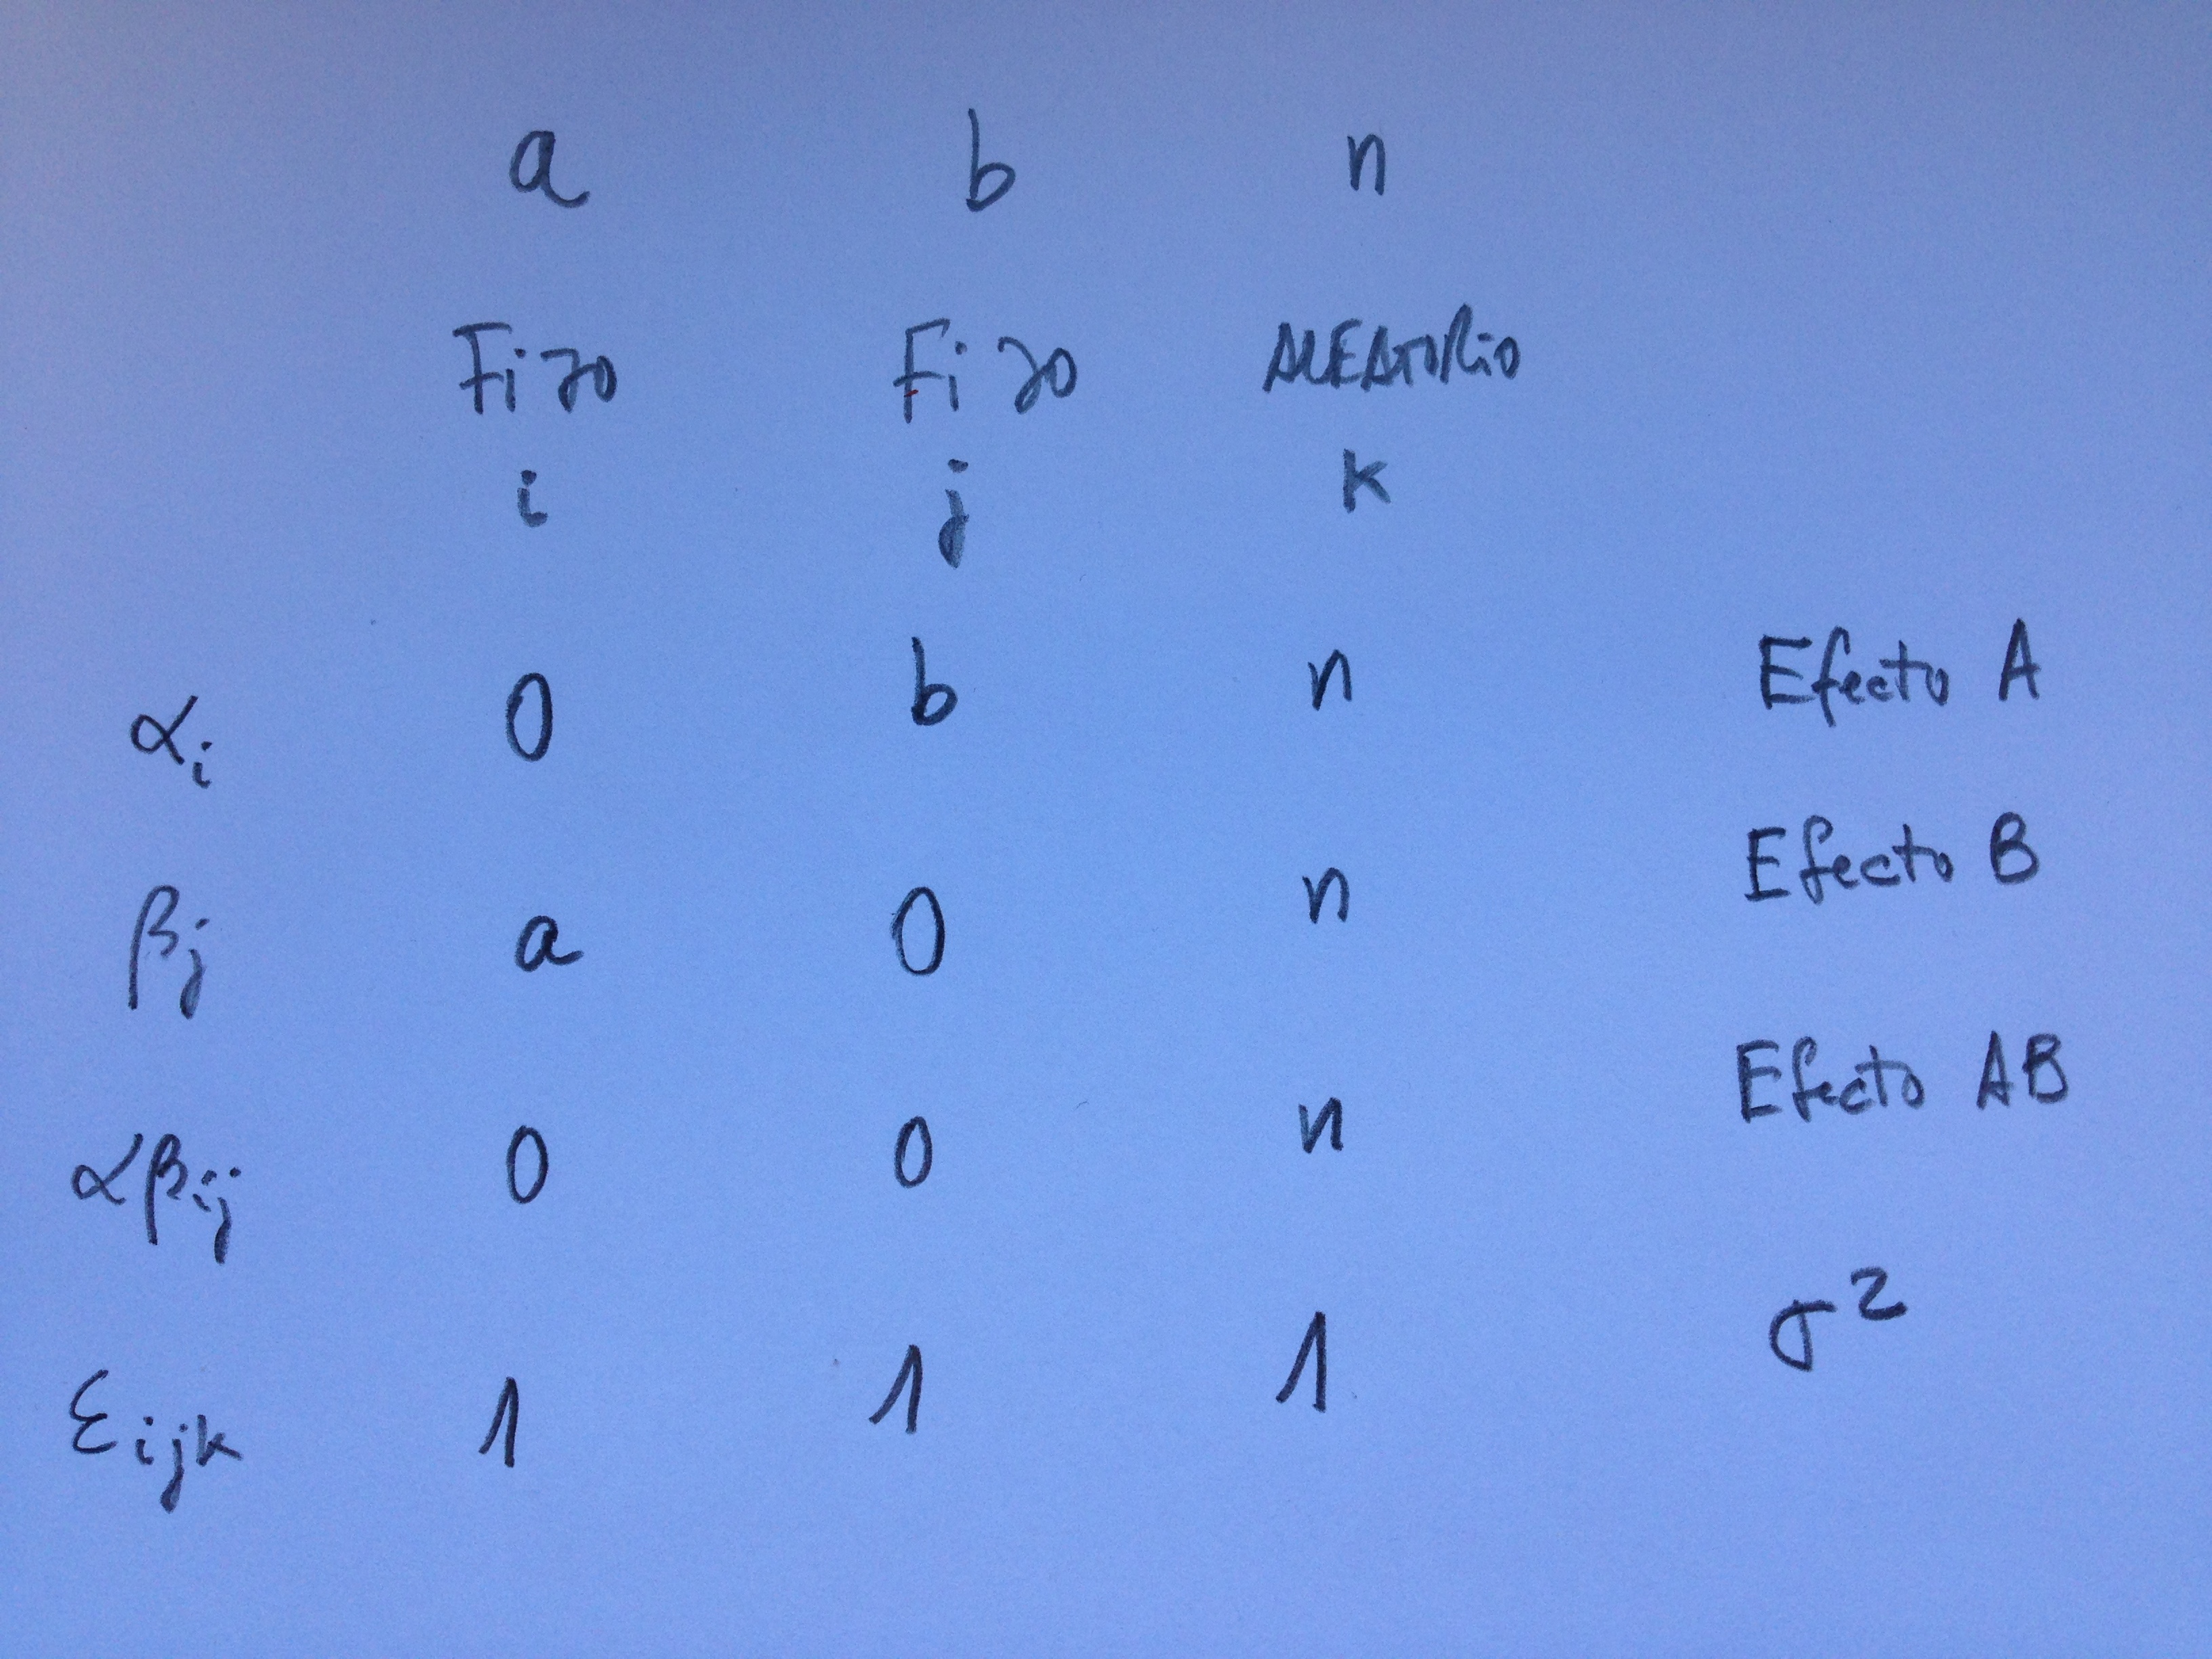 a b n
Fijo Fijo ALEATORIO
i j k
αi 0 b n Efecto A
βj a 0 n Efecto B
αβij 0 0 n Efecto AB
εijk 1 1 1 σ²